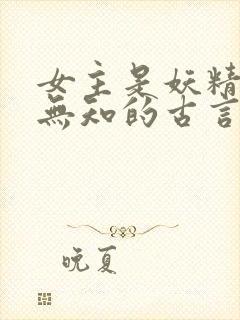 女主是妖精
無知的古言
晚夏